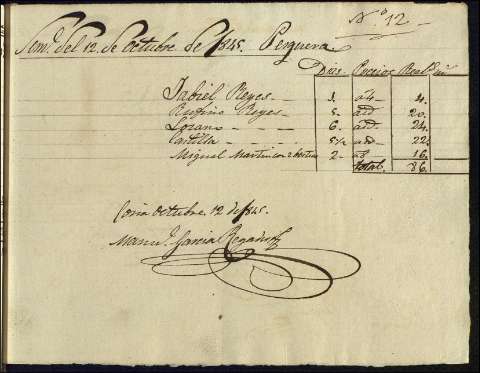 N.º 12
Sem.ª del 12 de Octubre de 1845. Pesquera
Dias Precios Real.s
Gabiel Reyes 1. a 4 4.
Rufino Reyes 5. add 20.
Lozano 6. add. 24.
Castilla 5 1/2 add 22.
Miguel Martin con 2 bestias 2 a 8 16.
Total. 86.
Coria Octubre 12 de 1845.
Manu.l Garcia